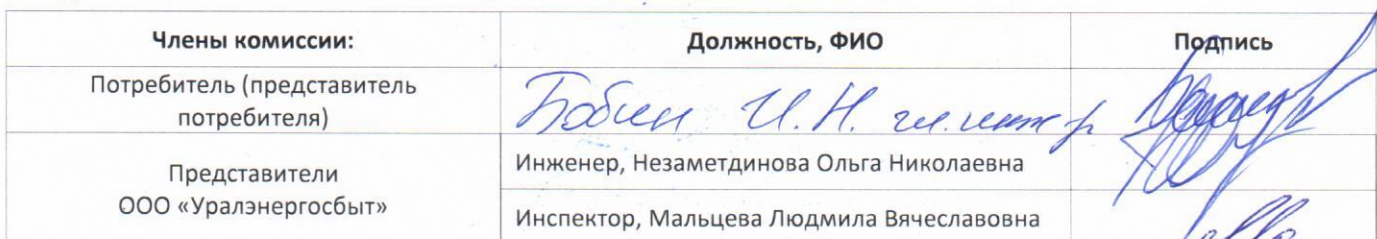 Члены комиссии: Должность, ФИО Подпись
Потребитель (представитель
потребителя)
Бобин И.Н. гл. инж
Представители
ООО «Уралэнергосбыт»
Инженер, Незаметдинова Ольга Николаевна
Инспектор, Мальцева Людмила Вячеславовна